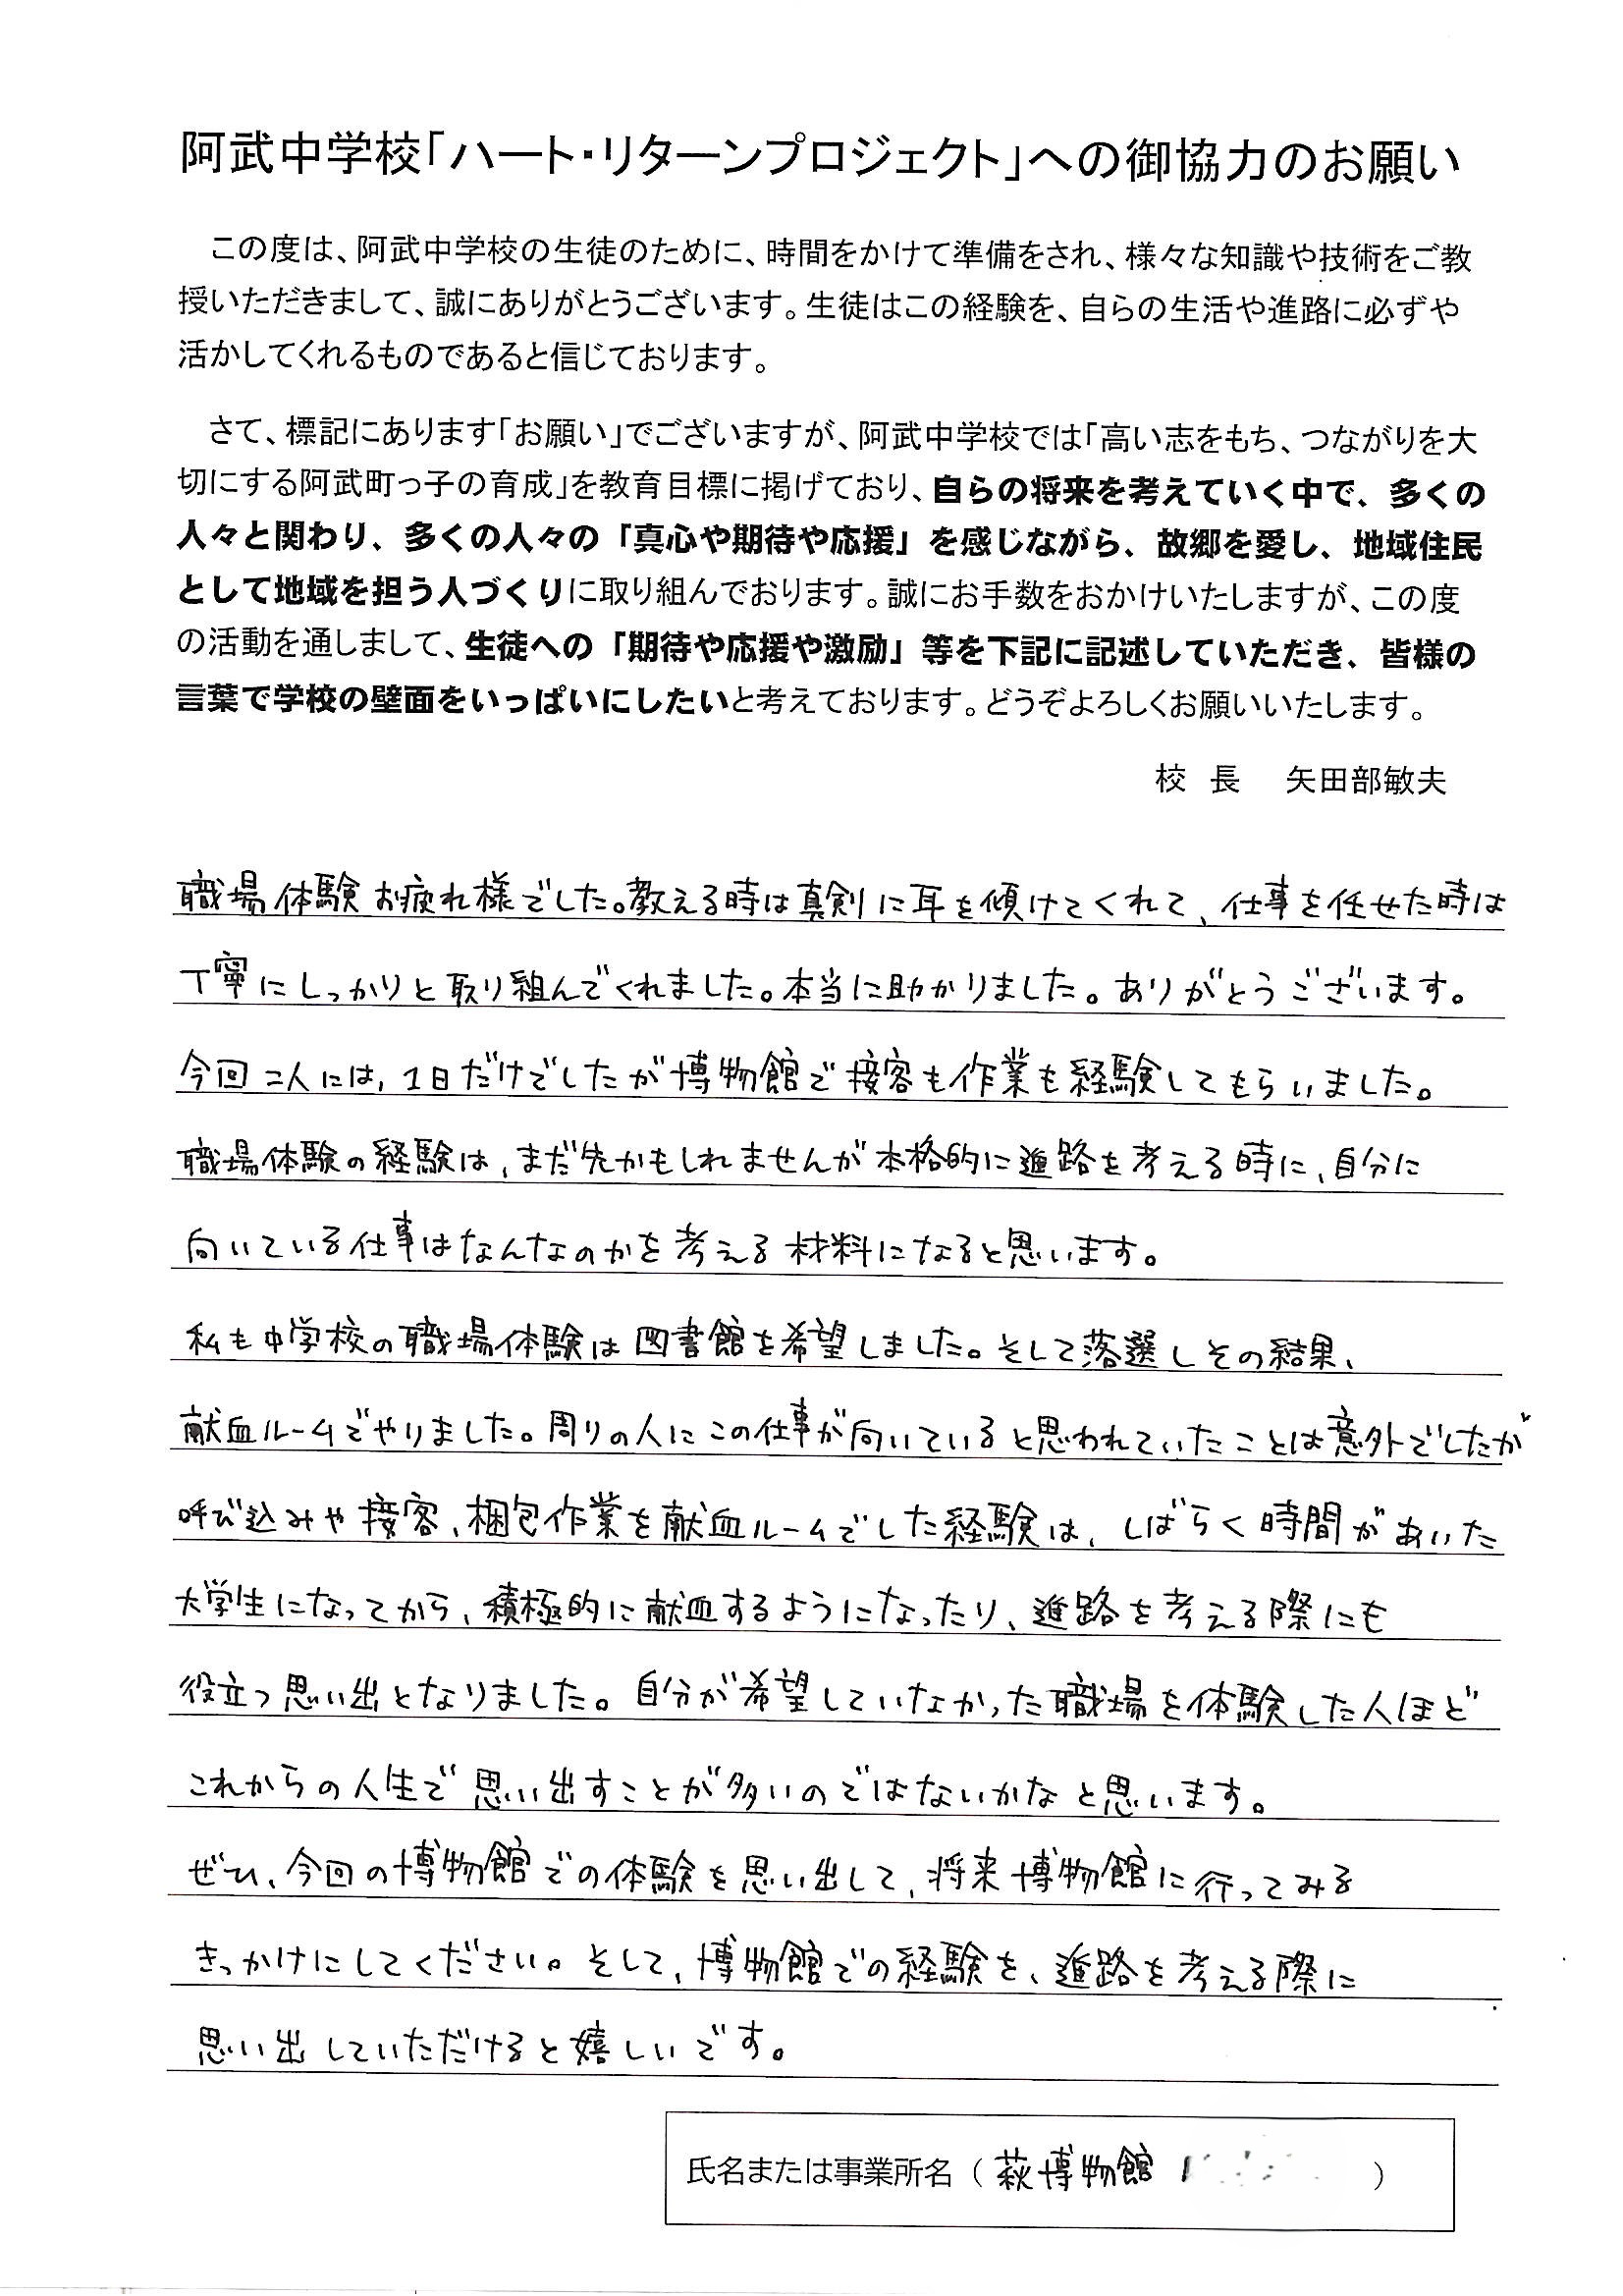 阿武中学校「ハート・リターンプロジェクト」への御協力のお願い
この度は、阿武中学校の生徒のために、時間をかけて準備をされ、様々な知識や技術をご教
授いただきまして、誠にありがとうございます。生徒はこの経験を、自らの生活や進路に必ずや
活かしてくれるものであると信じております。
さて、標記にあります「お願い」でございますが、阿武中学校では「高い志をもち、つながりを大
切にする阿武町っ子の育成」を教育目標に掲げており、自らの将来を考えていく中で、多くの
人々と関わり、多くの人々の「真心や期待や応援」を感じながら、故郷を愛し、地域住民
として地域を担う人づくりに取り組んでおります。誠にお手数をおかけいたしますが、この度
の活動を通しまして、生徒への「期待や応援や激励」等を下記に記述していただき、皆様の
言葉で学校の壁面をいっぱいにしたいと考えております。どうぞよろしくお願いいたします。
校 長 矢田部敏夫
職場体験お疲れ様でした。教える時は真剣に耳を傾けてくれて、仕事を任せた時は
丁寧にしっかりと取り組んでくれました。本当に助かりました。ありがとうございます。
今回二人には、1日だけでしたが博物館で接客も作業も経験してもらいました。
職場体験の経験は、まだ先かもしれませんが本格的に進路を考える時に、自分に
向いている仕事はなんなのかを考える材料になると思います。
私も中学校の職場体験は図書館を希望しました。そして落選しその結果、
献血ルームでやりました。周りの人にこの仕事が向いていると思われていたことは意外でしたが
呼び込みや接客、梱包作業を献血ルームでした経験は、しばらく時間があいた
大学生になってから、積極的に献血するようになったり、進路を考える際にも
役立つ思い出となりました。自分が希望していなかった職場を体験した人ほど
これからの人生で思い出すことが多いのではないかなと思います。
ぜひ、今回の博物館での体験を思い出して、将来博物館に行ってみる
きっかけにしてください。そして、博物館での経験を、進路を考える際に
思い出していただけると嬉しいです。
氏名または事業所名（萩博物館 ）